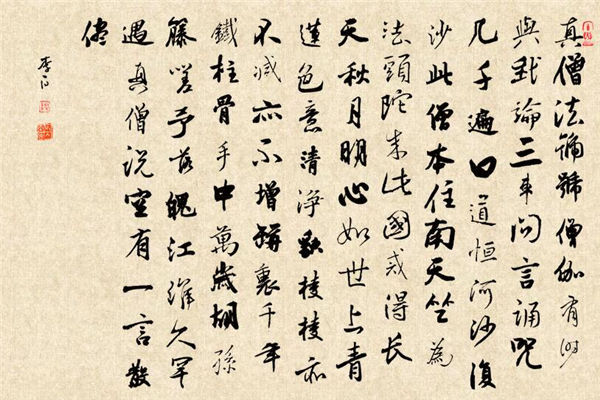 真僧法號號僧伽有时
與我論三車問言誦咒
几千遍口道恒河沙復
沙此僧本住南天竺為
法頭陀来此國戒得長
天秋月明心如世上青
蓮色意清淨貌棱棱亦
不減亦不增瓶裏千年
鐵柱骨手中萬歲胡孫
藤嗟予落魄江淮久罕
遇真僧説空有一言散
儘
李白